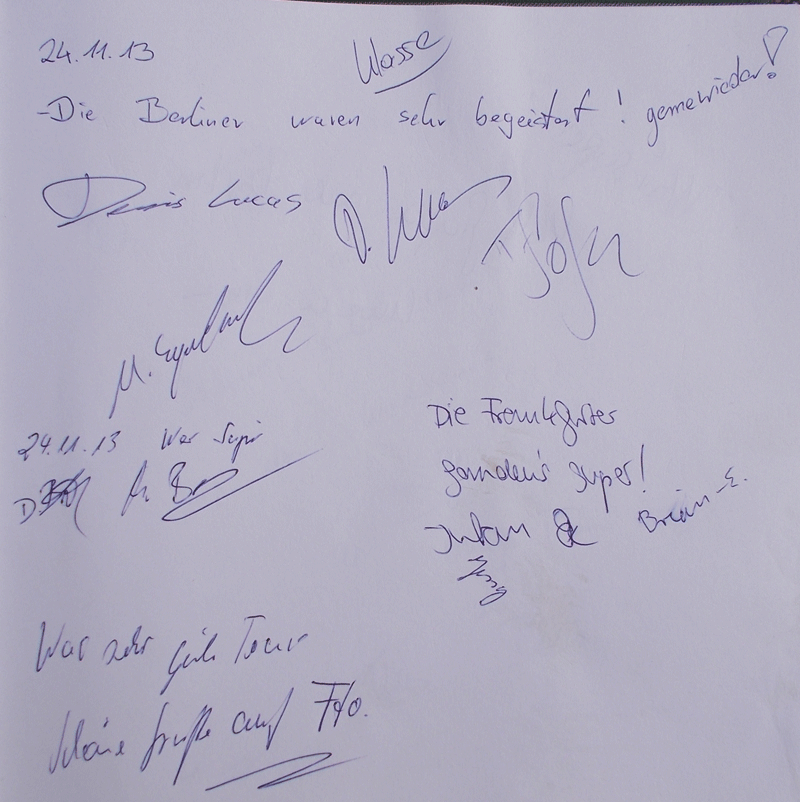 24.11.13 Klasse
-Die Berliner waren sehr begeistert! gerne wieder!
Denis Lucas
24.11.13 War Super
Die Frankfurter
fanden's super!
Brian-E.
War sehr gute Tour
Schöne Grüße auf F/O.